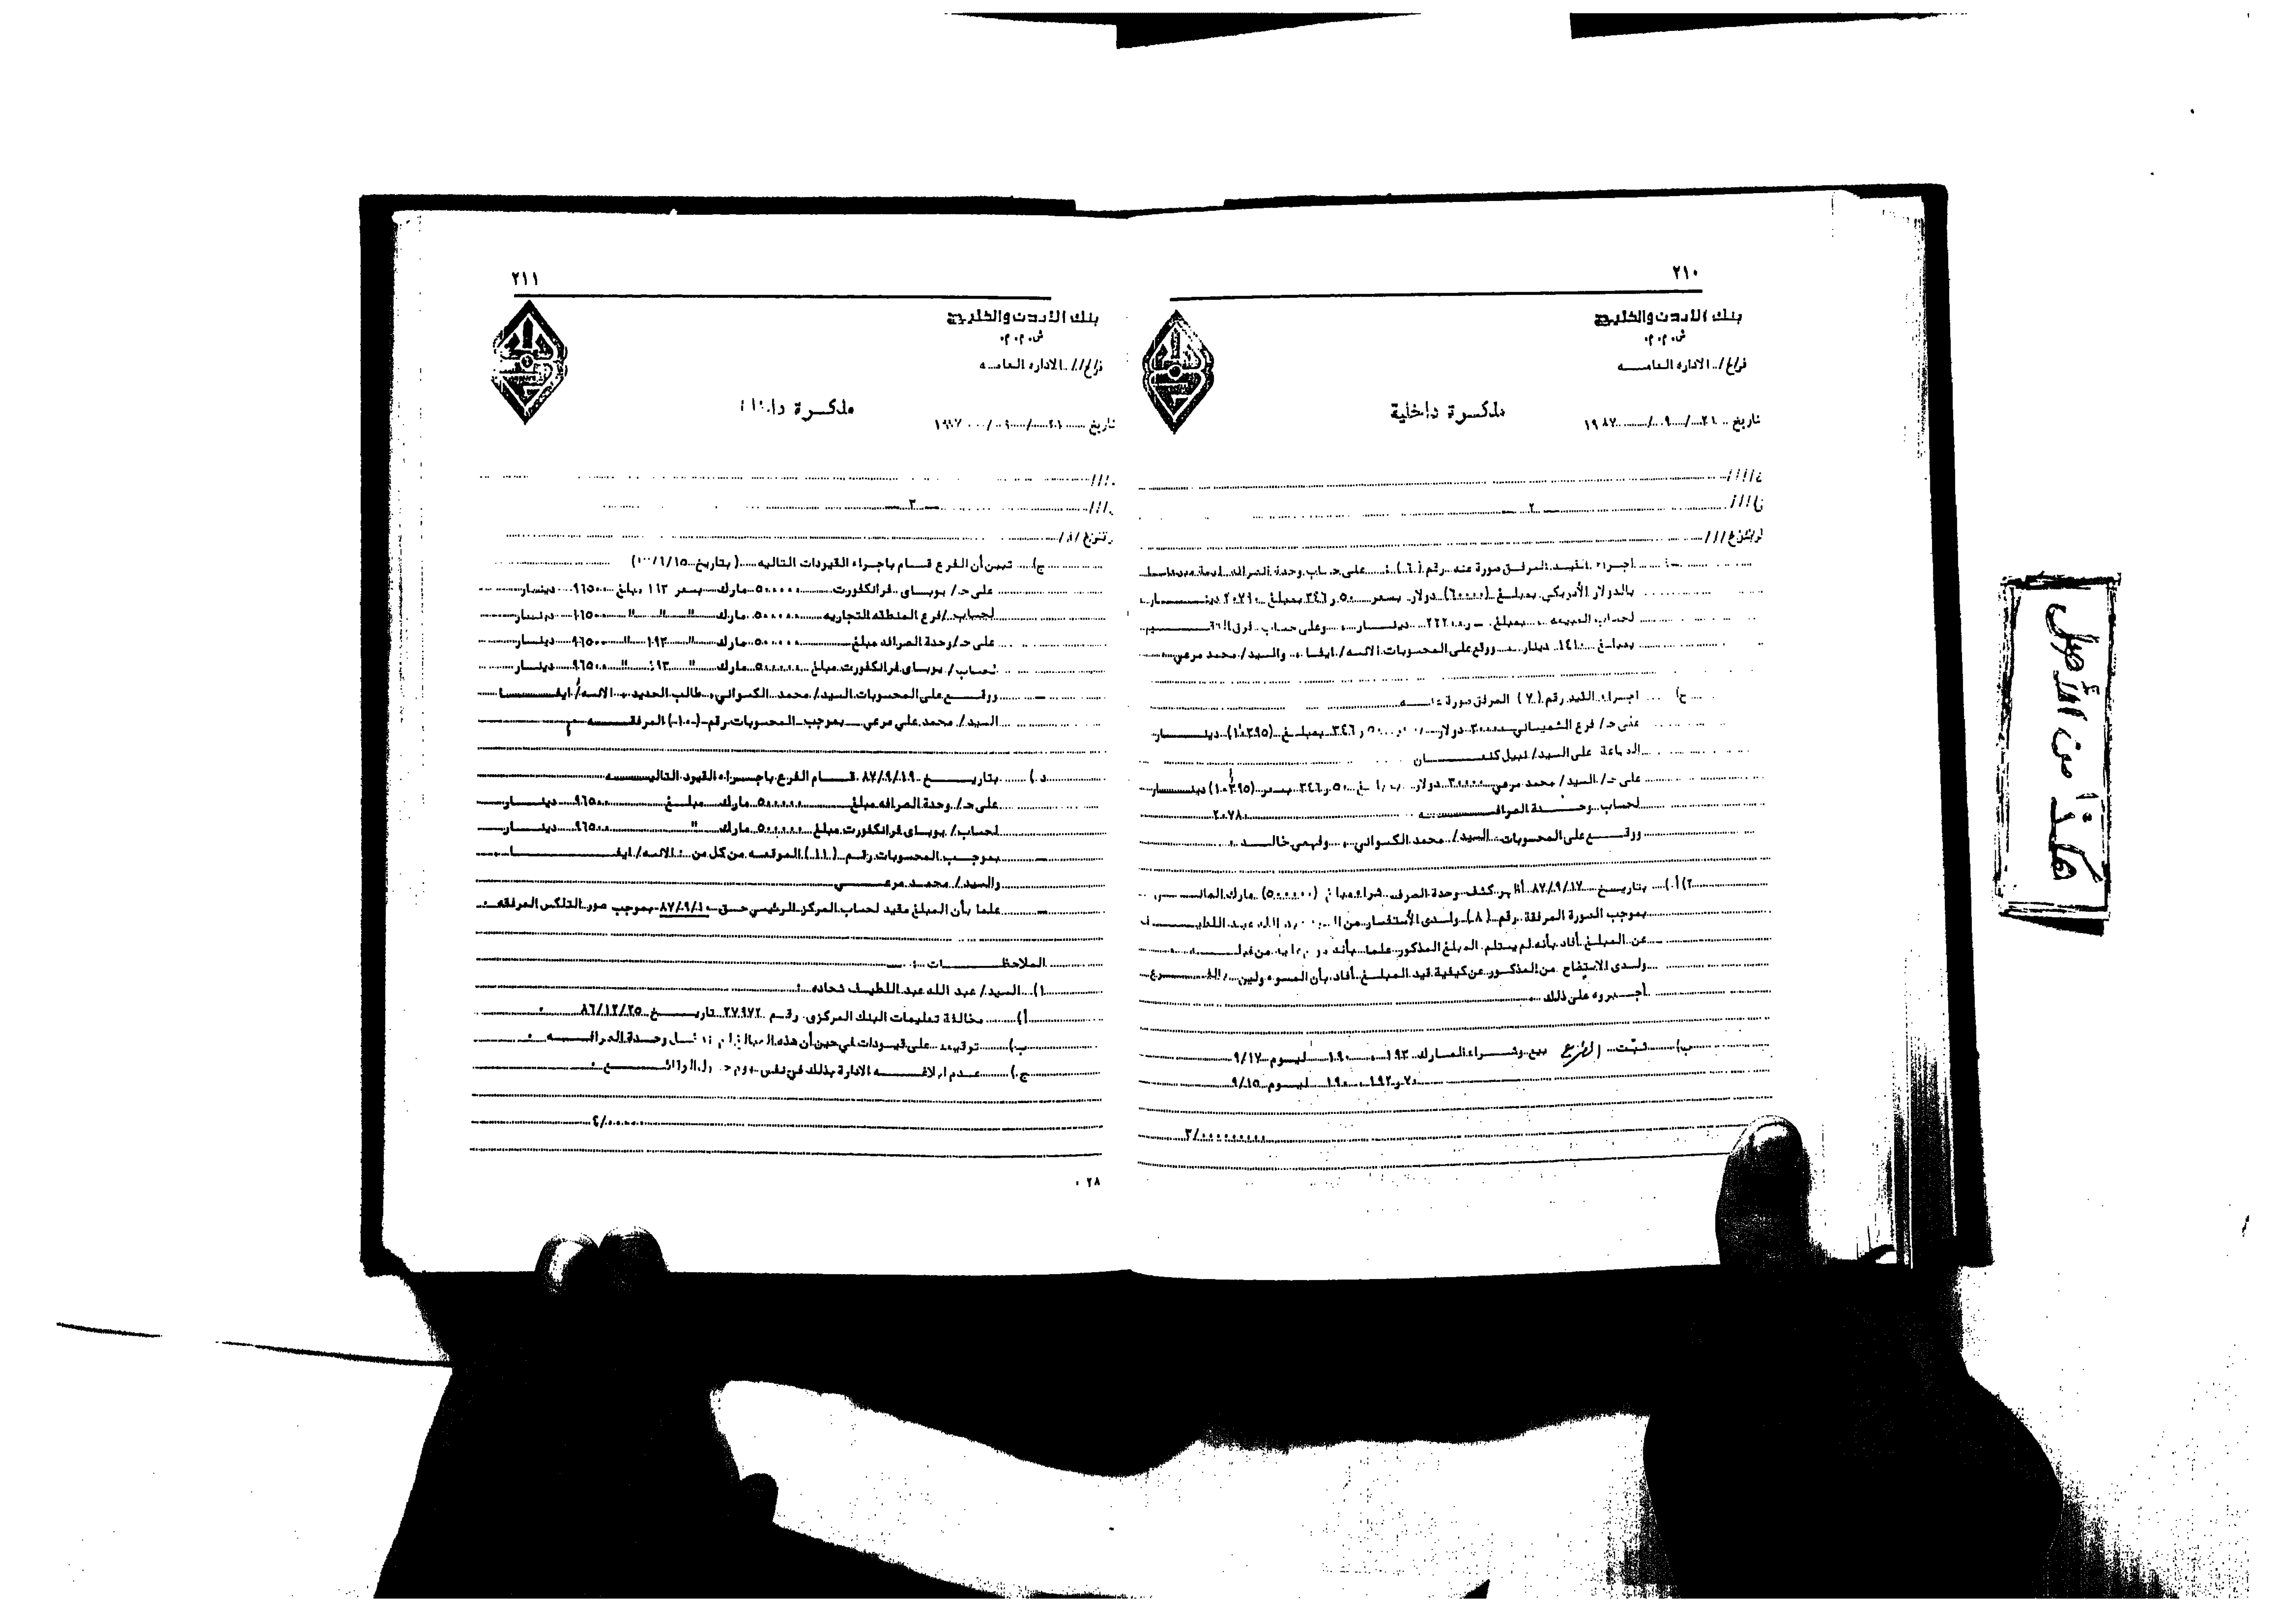 ٢١٠
بنك الأردن والخليج
ش.م.م.
فرع/ الاداره العامــه
مذكـرة داخلية
تاريخ ٢١/٩/١٩٨٧
— ٢ —
اجراء القيد المرفق صورة عنه رقم (٦): على حساب وحدة الصرافه
بالدولار الأمريكي بمبلغ (٦٠٠٠٠) دولار بسعر ٥٠ر٣٤٦ بمبلغ ٢٠٧٩٠ دينــار
لحساب بمبلغ دينـار وعلى حساب فرق
بمبلغ ١٤١٠ دينار ووقع على المحسوبات الانسه/ ايفـا ، والسيد/ محمد مرعي
ح) اجراء القيد رقم (٧) المرفق صورة عنــه
على حـ/ فرع الشميساني ٣٠٠٠٠ دولار ٥٠ر٣٤٦ بمبلـغ (١٠٣٩٥) دينــار
على السيد/ نبيل كنعــان
على حـ/ السيد/ محمد مرعي ٣٠٠٠٠ دولار ٥٠ر٣٤٦ بسعر (١٠٣٩٥) دينــار
لحساب وحــدة الصرافــه ٢٠٧٨٠
ووقــع على المحسوبات السيد/ محمد الكسواني ، وفهمي خالــد .
٢) أ) بتاريـخ ٨٧/٩/١٧ أظهر كشف وحدة الصرف شراء مبلغ (٥٠٠٠٠٠) مارك الماني
بموجب الصورة المرفقة رقم (٨) ولدى الأستفسار من عبد اللطيــف
عن المبلغ أفاد بأنه لم يستلم المبلغ المذكور علما بأنه من قبلــه
ولدى الاستضاح من المذكـور عن كيفية قيد المبلـغ أفاد بأن المسوءولين الفــرع
أجـبروه على ذلك
ب) ثبّت الفرع بيع وشـراء المارك ١٩٣ ، ١٩٠ ليـوم ٩/١٧
٧٠ر١٩٢ ، ١٩٠ ليـوم ٩/١٥
٣/.........
٢١١
بنك الأردن والخليج
ش.م.م.
فرع/ الاداره العامــه
مذكـرة
تاريخ ٢١/٩/١٩٨٧
— ٣ —
ج) تبين أن الفرع قـام باجراء القيودات التاليه (بتاريخ
على حـ/ بوباى فرانكفورت ٥٠٠٠٠٠ مارك بسعر ١٩٣ مبلغ ٩٦٥٠٠ دينـار
لحساب/ فرع المنطقه التجاريه ٥٠٠٠٠٠ مارك " " " ٩٦٥٠٠ دينـار
على حـ/ وحدة الصرافه مبلغ ٥٠٠٠٠٠ مارك " ١٩٣ " ٩٦٥٠٠ دينـار
لحساب/ بوباى فرانكفورت مبلغ ٥٠٠٠٠٠ مارك " ١٩٣ " ٩٦٥٠٠ دينـار
— ووقــع على المحسوبات السيد/ محمد الكسواني، طالب الحديد ، الانسه/ ايفــا
السيد/ محمد علي مرعي بموجب المحسوبات رقم (١٠) المرفقــه
د) بتاريـخ ٨٧/٩/١٩ قـام الفرع باجـراء القيود التاليــه
على حـ/ وحدة الصرافه مبلغ ٥٠٠٠٠٠ مارك مبلـغ ٩٦٥٠٠ دينـار
لحساب/ بوباى فرانكفورت مبلغ ٥٠٠٠٠٠ مارك " ٩٦٥٠٠ دينـار
— بموجـب المحسوبات رقـم (١١) الموقعه من كل من : الانسه/ ايفــا
والسيد/ محمـد مرعــي
— علما بأن المبلغ مقيد لحساب المركز الرئيسي حـق ٨٧/٩/١٠ بموجب صور التلكس المرفقه .
الملاحظــات :
١) السيد/ عبد الله عبد اللطيـف شحاده :
أ) مخالفة تعليمات البنك المركزى رقـم ٢٧٩٧٢ تاريــخ ٨٦/١٢/٢٥ .
ب) توقيعه على قيـودات في حين أن هذه المبالغ لم تدخـل وحـدة الصرافــه .
ج) عـدم ابلاغــه الادارة بذلك في نفس يوم حصول الوقائــع .
٤/.......
٢٨ .
هكذا من الأصل